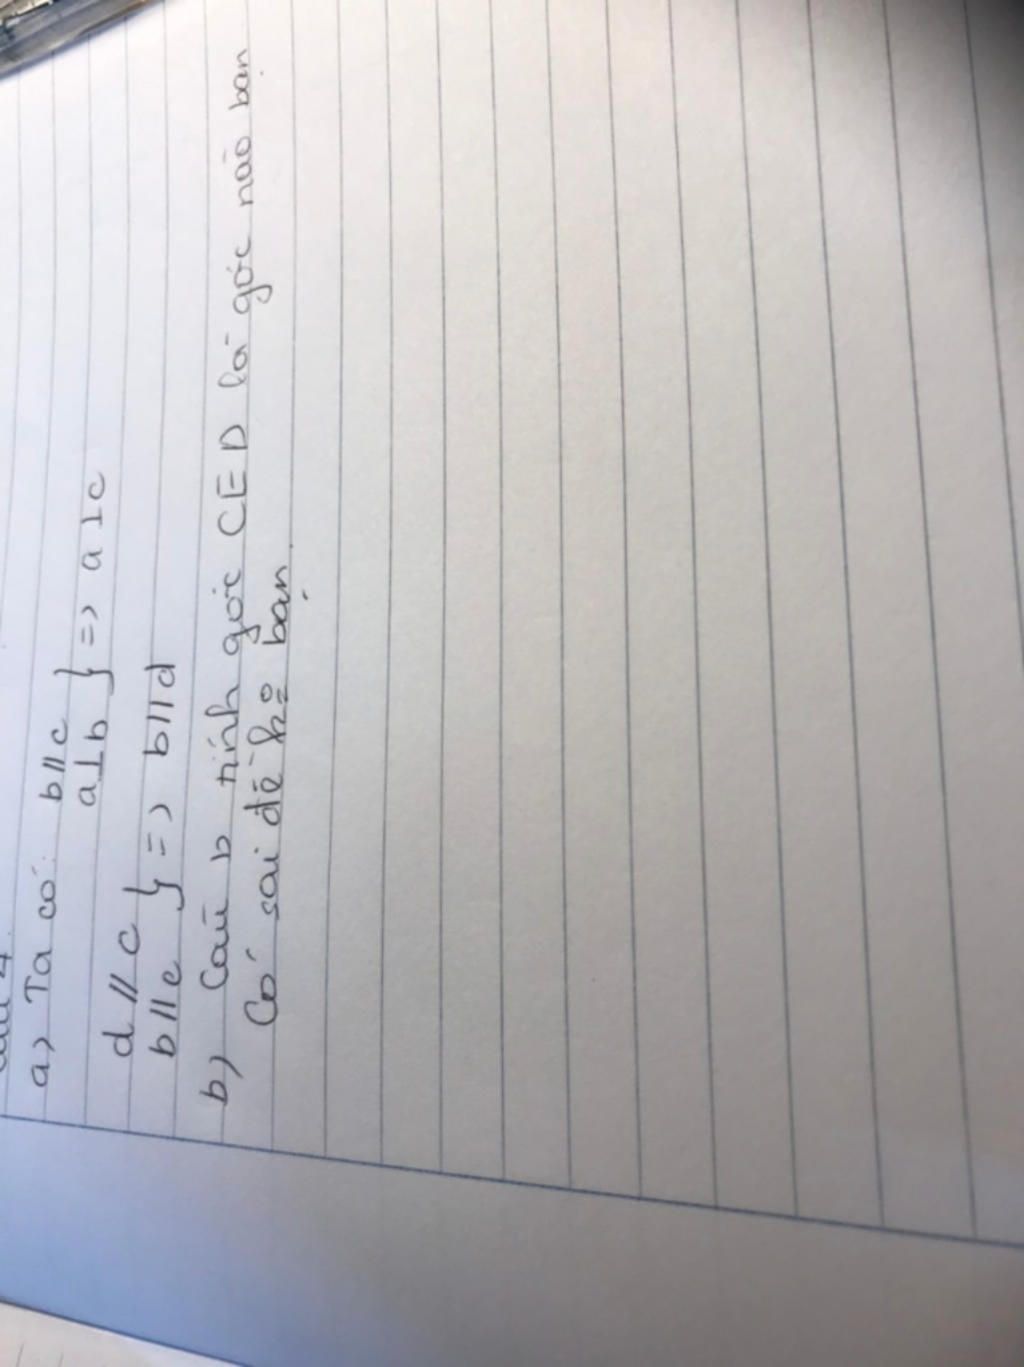 a) Ta có: b//c
a⊥b } => a⊥c
d//c
b//c } => b//d
b) Câu b tính góc CED là góc nào bạn
Có sai đề ko bạn.